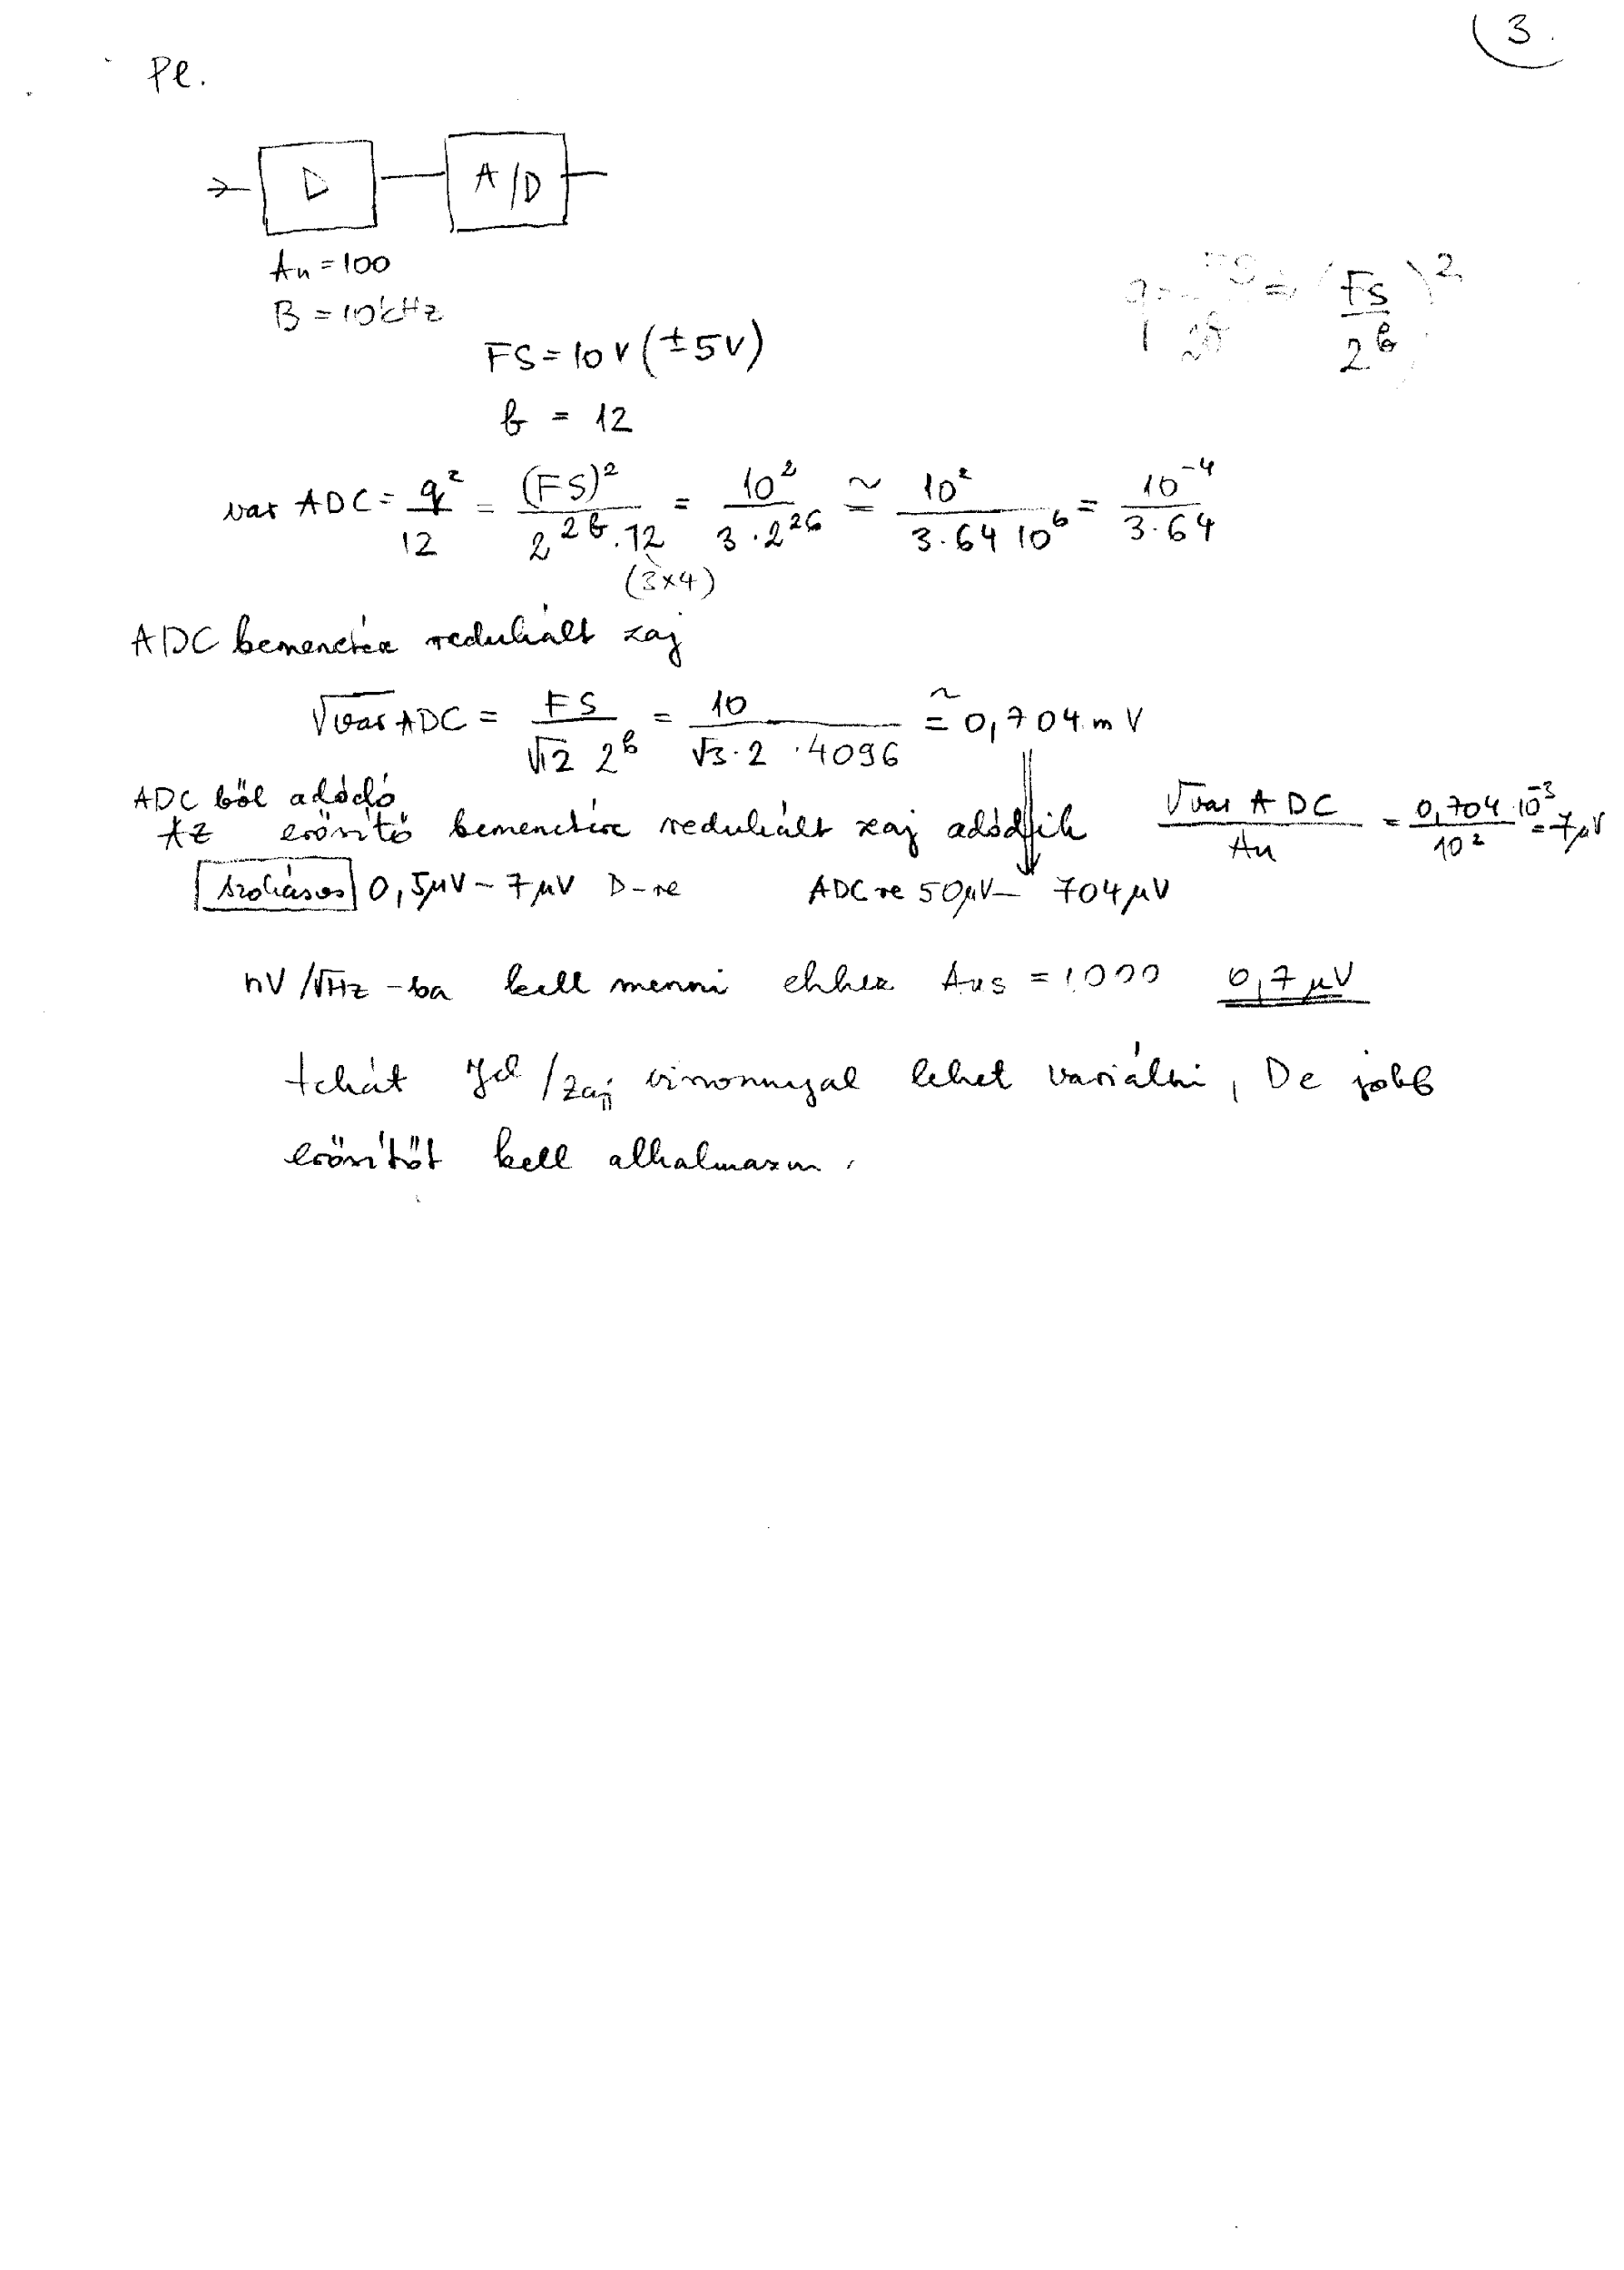 3.
Pl.
▷ A/D
Au = 100
B = 10kHz
q = FS / 2^b ⇒ (FS / 2^b)^2
FS = 10V (±5V)
b = 12
var ADC = q^2 / 12 = (FS)^2 / 2^2b · 12 = 10^2 / 3 · 2^26 ≃ 10^2 / 3 · 64 10^6 = 10^-4 / 3 · 64
(3×4)
ADC bemenetére redukált zaj
√var ADC = FS / √12 2^b = 10 / √3 · 2 · 4096 ≅ 0,704 mV
ADC ből adódó
Az erősítő bemenetére redukált zaj adódik √var ADC / Au = 0,704 · 10^-3 / 10^2 = 7μV
szokásos 0,5μV – 7μV ▷-re ADC re 50μV – 704μV
nV/√Hz -ba kell menni ehhez Aus = 1000 0,7μV
tehát Jel/zaj viszonnyal lehet variálni, De jobb
erősítőt kell alkalmazni.